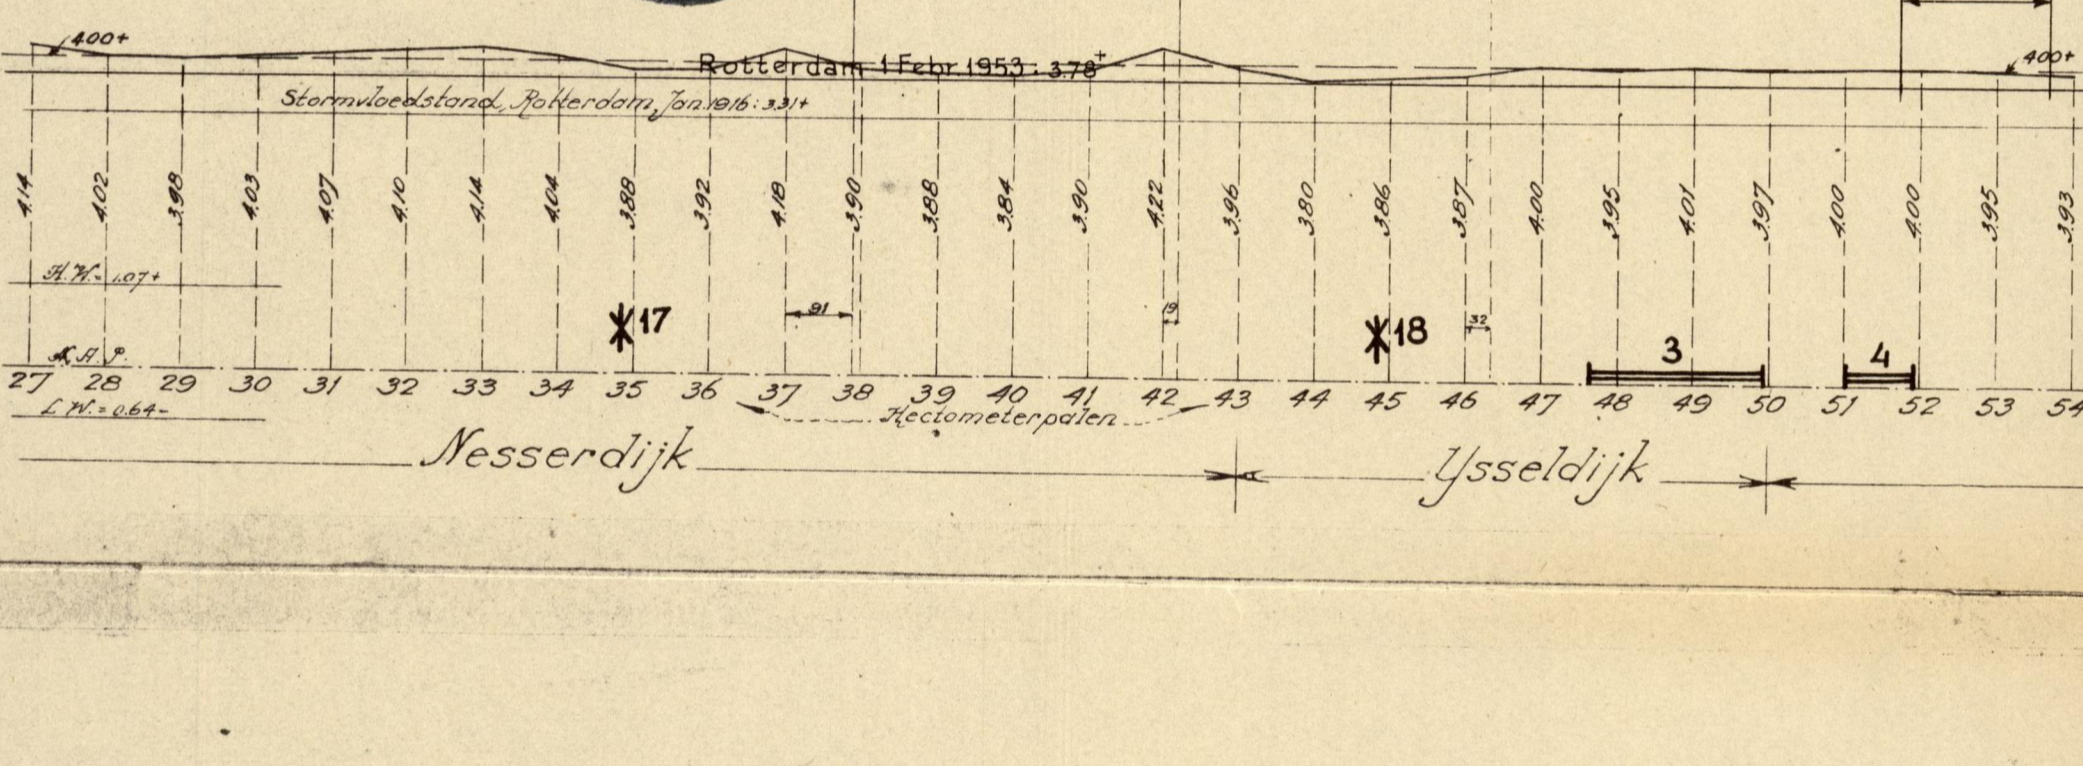 400+
400+
Rotterdam 1 Febr. 1953: 3.78+
Stormvloedstand, Rotterdam, Jan. 1916: 3.31+
4.14 4.02 3.98 4.03 4.07 4.10 4.14 4.04 3.88 3.92 4.18 3.90 3.88 3.84 3.90 4.22 3.96 3.80 3.86 3.87 4.00 3.95 4.01 3.97 4.00 4.00 3.95 3.93
H.W.= 1.07+
17 91 19 18 32
N.A.P. 3 4
27 28 29 30 31 32 33 34 35 36 37 38 39 40 41 42 43 44 45 46 47 48 49 50 51 52 53 54
L.W.= 0.64-
Hectometerpalen
Nesserdijk Ysseldijk